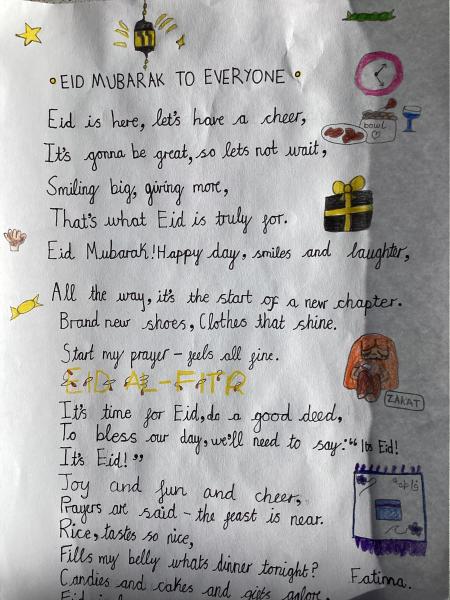 EID MUBARAK TO EVERYONE
bowl
Eid is here, let's have a cheer,
It's gonna be great, so lets not wait,
Smiling big, giving more,
That's what Eid is truly for.
Eid Mubarak! Happy day, smiles and laughter,
All the way, it's the start of a new chapter.
Brand new shoes, Clothes that shine.
Start my prayer - feels all fine.
EID AL-FITR
ZAKAT
It's time for Eid, do a good deed,
To bless our day, we'll need to say: "Its Eid!
It's Eid!"
Joy and fun and cheer,
Prayers are said - the feast is near.
Rice, tastes so nice,
Fills my belly whats dinner tonight?
Candies and cakes and gifts galore,
Fatima.
Eid is